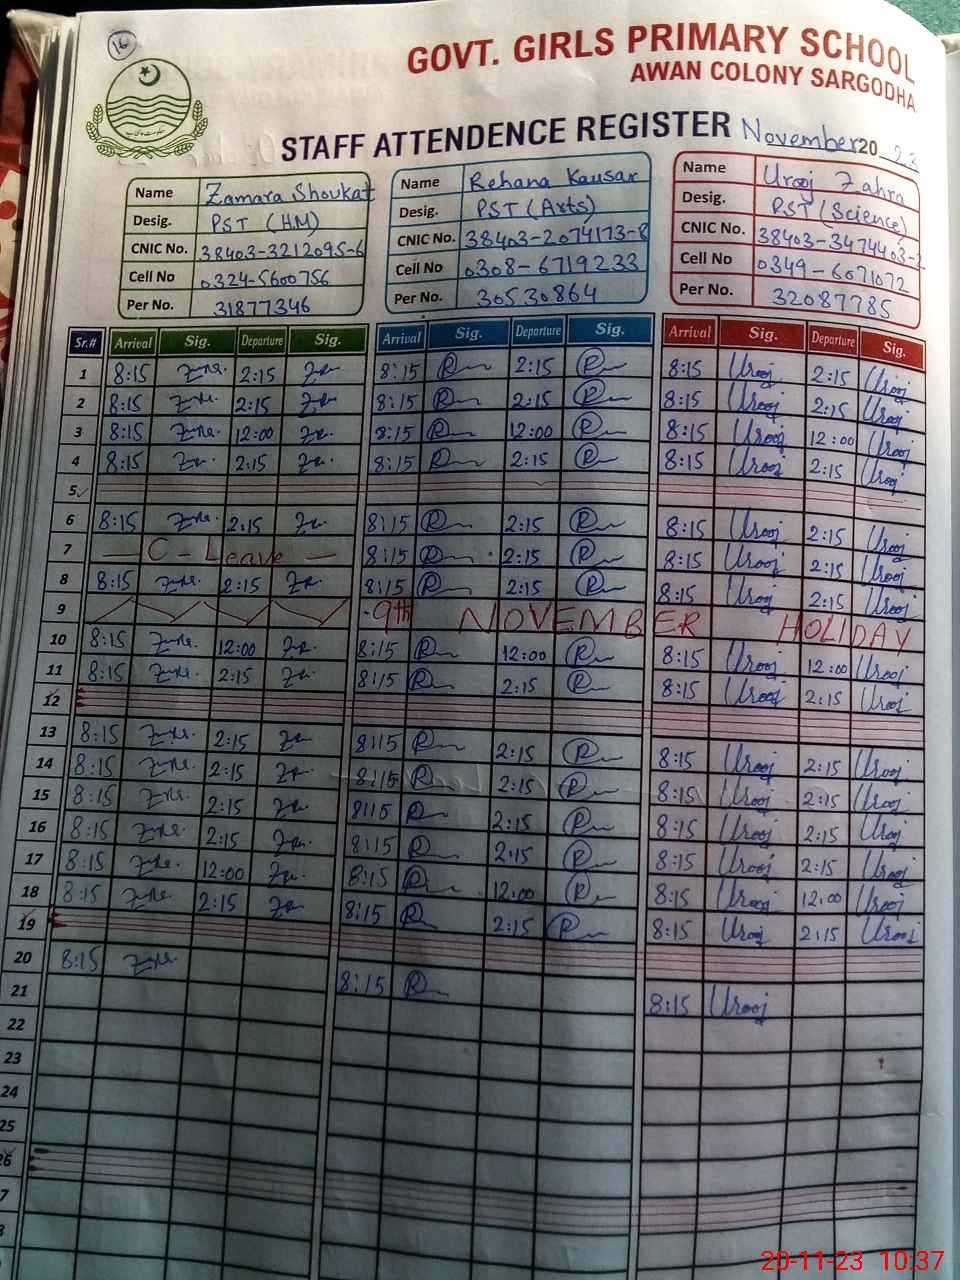 16
GOVT. GIRLS PRIMARY SCHOOL
AWAN COLONY SARGODHA
STAFF ATTENDENCE REGISTER November 20 23
Name Zamara Shoukat Name Rehana Kausar Name Urooj Zahra
Desig. PST (H.M) Desig. PST (Arts) Desig. PST (Science)
CNIC No. 38403-3212095-6 CNIC No. 38403-2074173-8 CNIC No. 38403-3474403-2
Cell No 0324-5600756 Cell No 0308-6719233 Cell No 0349-6071072
Per No. 31877346 Per No. 30530864 Per No. 32087785
Sr.# Arrival Sig. Departure Sig. Arrival Sig. Departure Sig. Arrival Sig. Departure Sig.
1 8:15 2:15 8:15 2:15 8:15 Urooj 2:15 Urooj
2 8:15 2:15 8:15 2:15 8:15 Urooj 2:15 Urooj
3 8:15 12:00 8:15 12:00 8:15 Urooj 12:00 Urooj
4 8:15 2:15 8:15 2:15 8:15 Urooj 2:15 Urooj
5
6 8:15 2:15 8:15 2:15 8:15 Urooj 2:15 Urooj
7 C - Leave 8:15 2:15 8:15 Urooj 2:15 Urooj
8 8:15 2:15 8:15 2:15 8:15 Urooj 2:15 Urooj
9 9th NOVEMBER HOLIDAY
10 8:15 12:00 8:15 12:00 8:15 Urooj 12:00 Urooj
11 8:15 2:15 8:15 2:15 8:15 Urooj 2:15 Urooj
12
13 8:15 2:15 8:15 2:15 8:15 Urooj 2:15 Urooj
14 8:15 2:15 8:15 2:15 8:15 Urooj 2:15 Urooj
15 8:15 2:15 8:15 2:15 8:15 Urooj 2:15 Urooj
16 8:15 2:15 8:15 2:15 8:15 Urooj 2:15 Urooj
17 8:15 12:00 8:15 12:00 8:15 Urooj 12:00 Urooj
18 8:15 2:15 8:15 2:15 8:15 Urooj 2:15 Urooj
19
20 8:15 8:15 8:15 Urooj
21
22
23
24
25
26
7
8
20-11-23 10:37